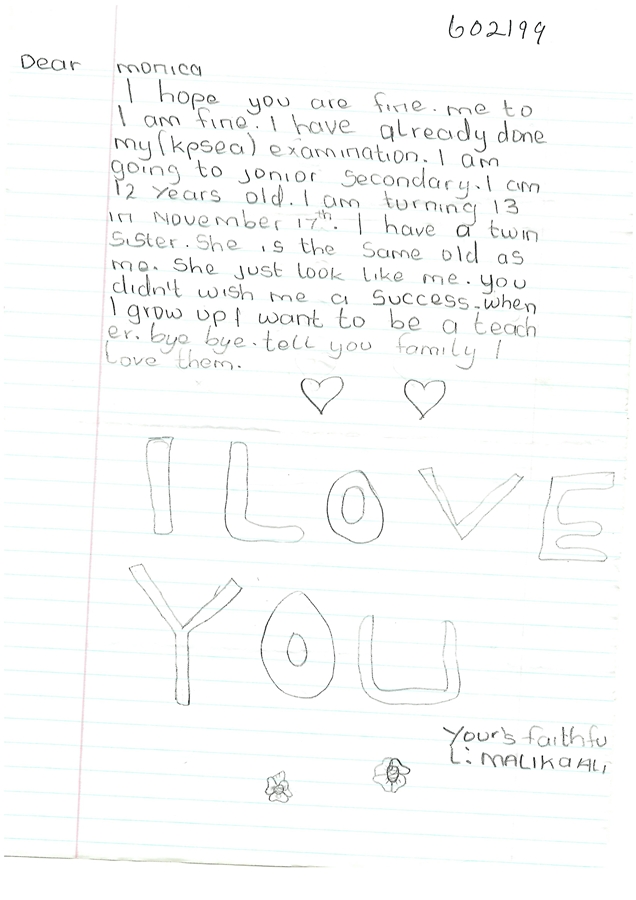 602199
Dear monica
I hope you are fine. me to
I am fine. I have already done
my (kpsea) examination. I am
going to jonior secondary. I am
12 years old. I am turning 13
in November 17th. I have a twin
sister. She is the same old as
me. She just look like me. you
didn't wish me a success. when
I grow up I want to be a teach
er. bye bye. tell you family I
Love them.
I LOVE
YOU
Your's faithfu
L: MALIKa ALI